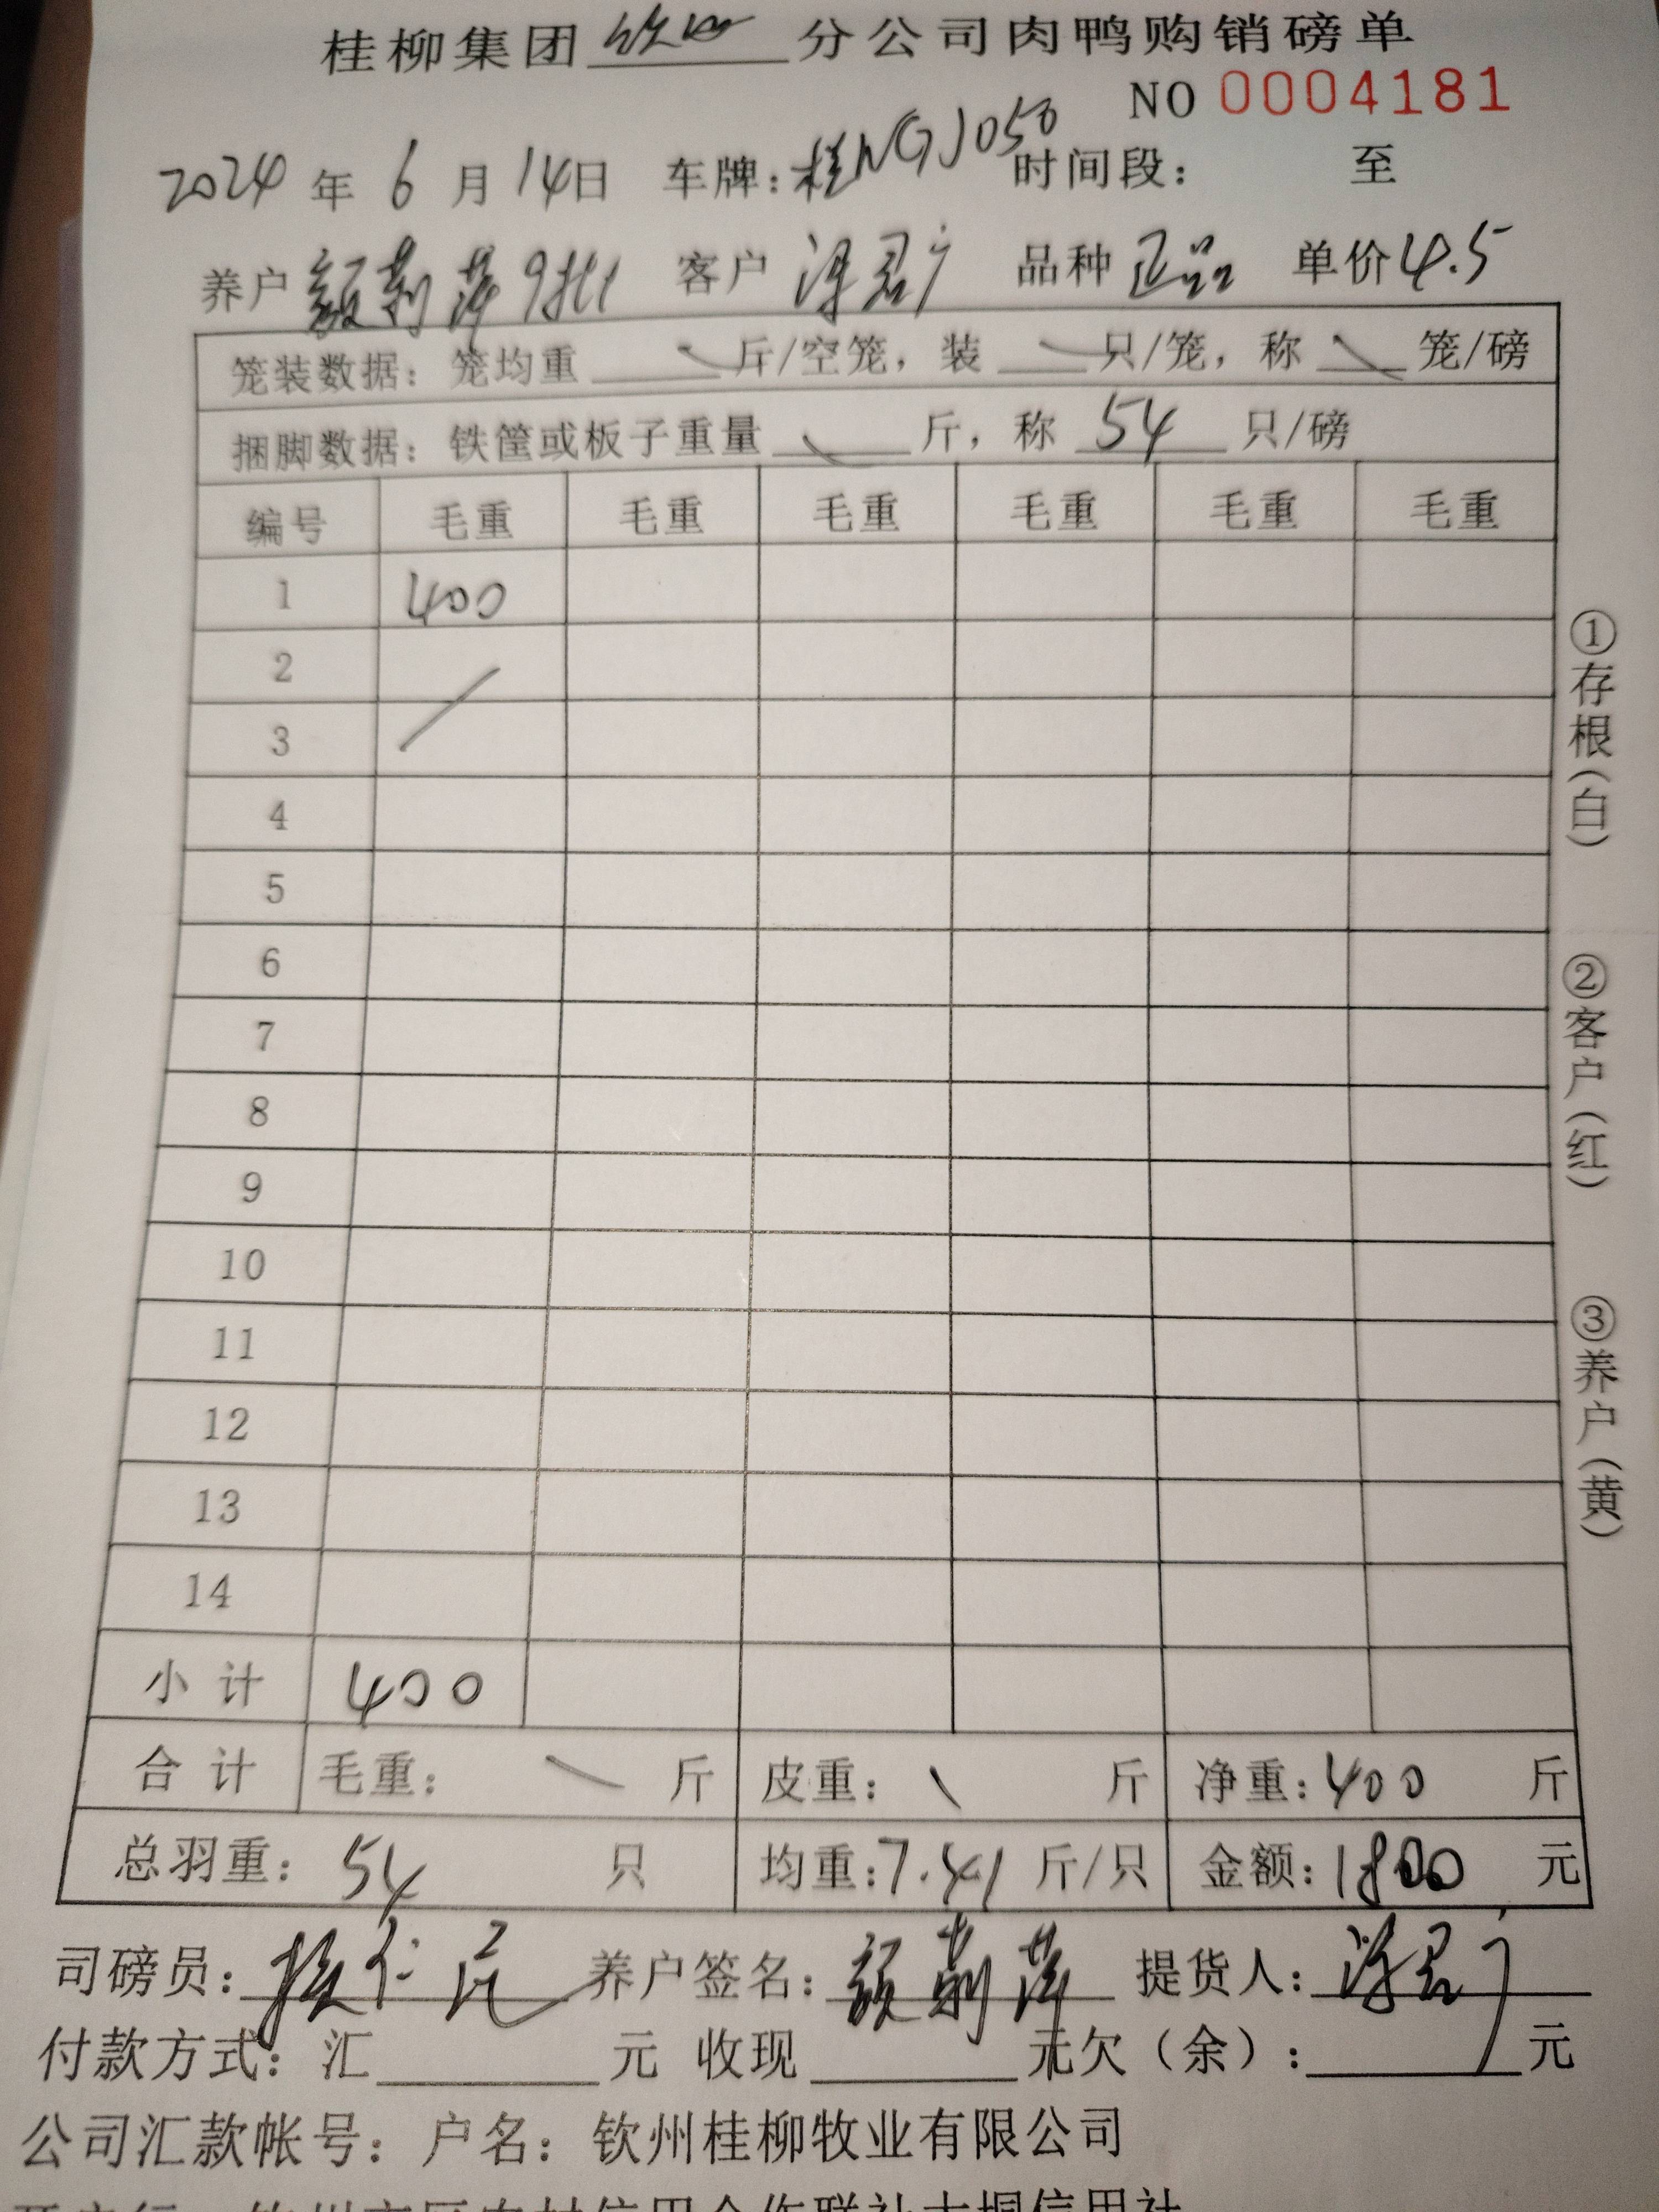 桂柳集团钦州分公司肉鸭购销磅单
NO 0004181
2024 年 6 月 14日 车牌：桂NGJ050 时间段： 至
养户 颜莉萍 9批1 客户 品种 正品 单价4.5
笼装数据：笼均重 斤/空笼，装 只/笼，称 笼/磅
捆脚数据：铁筐或板子重量 斤，称 54 只/磅
编号 毛重 毛重 毛重 毛重 毛重 毛重
1 400
2
3
4
5
6
7
8
9
10
11
12
13
14
小 计 400
合 计 毛重： 斤 皮重： 斤 净重：400 斤
总羽重：54 只 均重：7.41 斤/只 金额：1800 元
司磅员： 养户签名：颜莉萍 提货人：
付款方式：汇 元 收现 元欠（余）： 元
公司汇款帐号：户名：钦州桂柳牧业有限公司
①存根（白）
②客户（红）
③养户（黄）